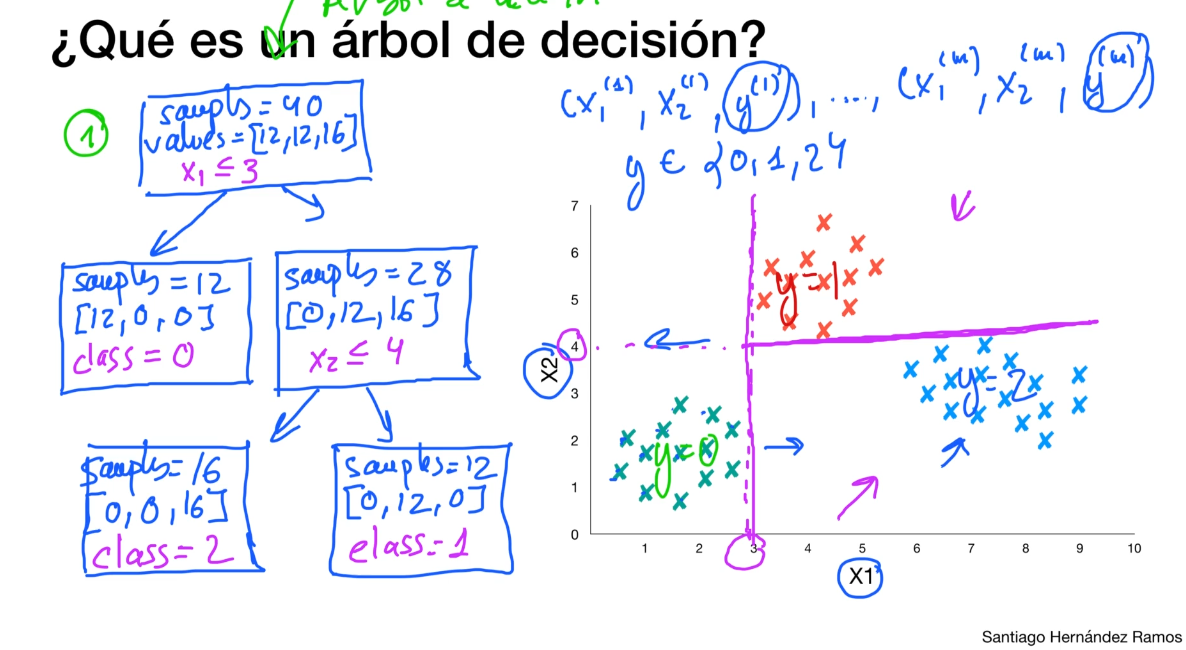 ¿Qué es un árbol de decisión?
1
samples = 40
values = [12,12,16]
x₁ ≤ 3
samples = 12
[12, 0, 0]
class = 0
samples = 28
[0, 12, 16]
x₂ ≤ 4
samples = 16
[0, 0, 16]
class = 2
samples = 12
[0, 12, 0]
class = 1
(x₁⁽¹⁾, x₂⁽¹⁾, y⁽¹⁾), ...., (x₁⁽ᵐ⁾, x₂⁽ᵐ⁾, y⁽ᵐ⁾)
y ∈ {0, 1, 2}
7
6
5
4
3
2
1
0
X2
y=1
y=2
y=0
1 2 3 4 5 6 7 8 9 10
X1
Santiago Hernández Ramos